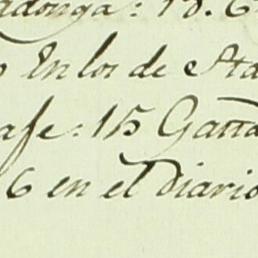 adonga: 18. 6
En los de Sta
afe: 15 Gana
6 en el Diario